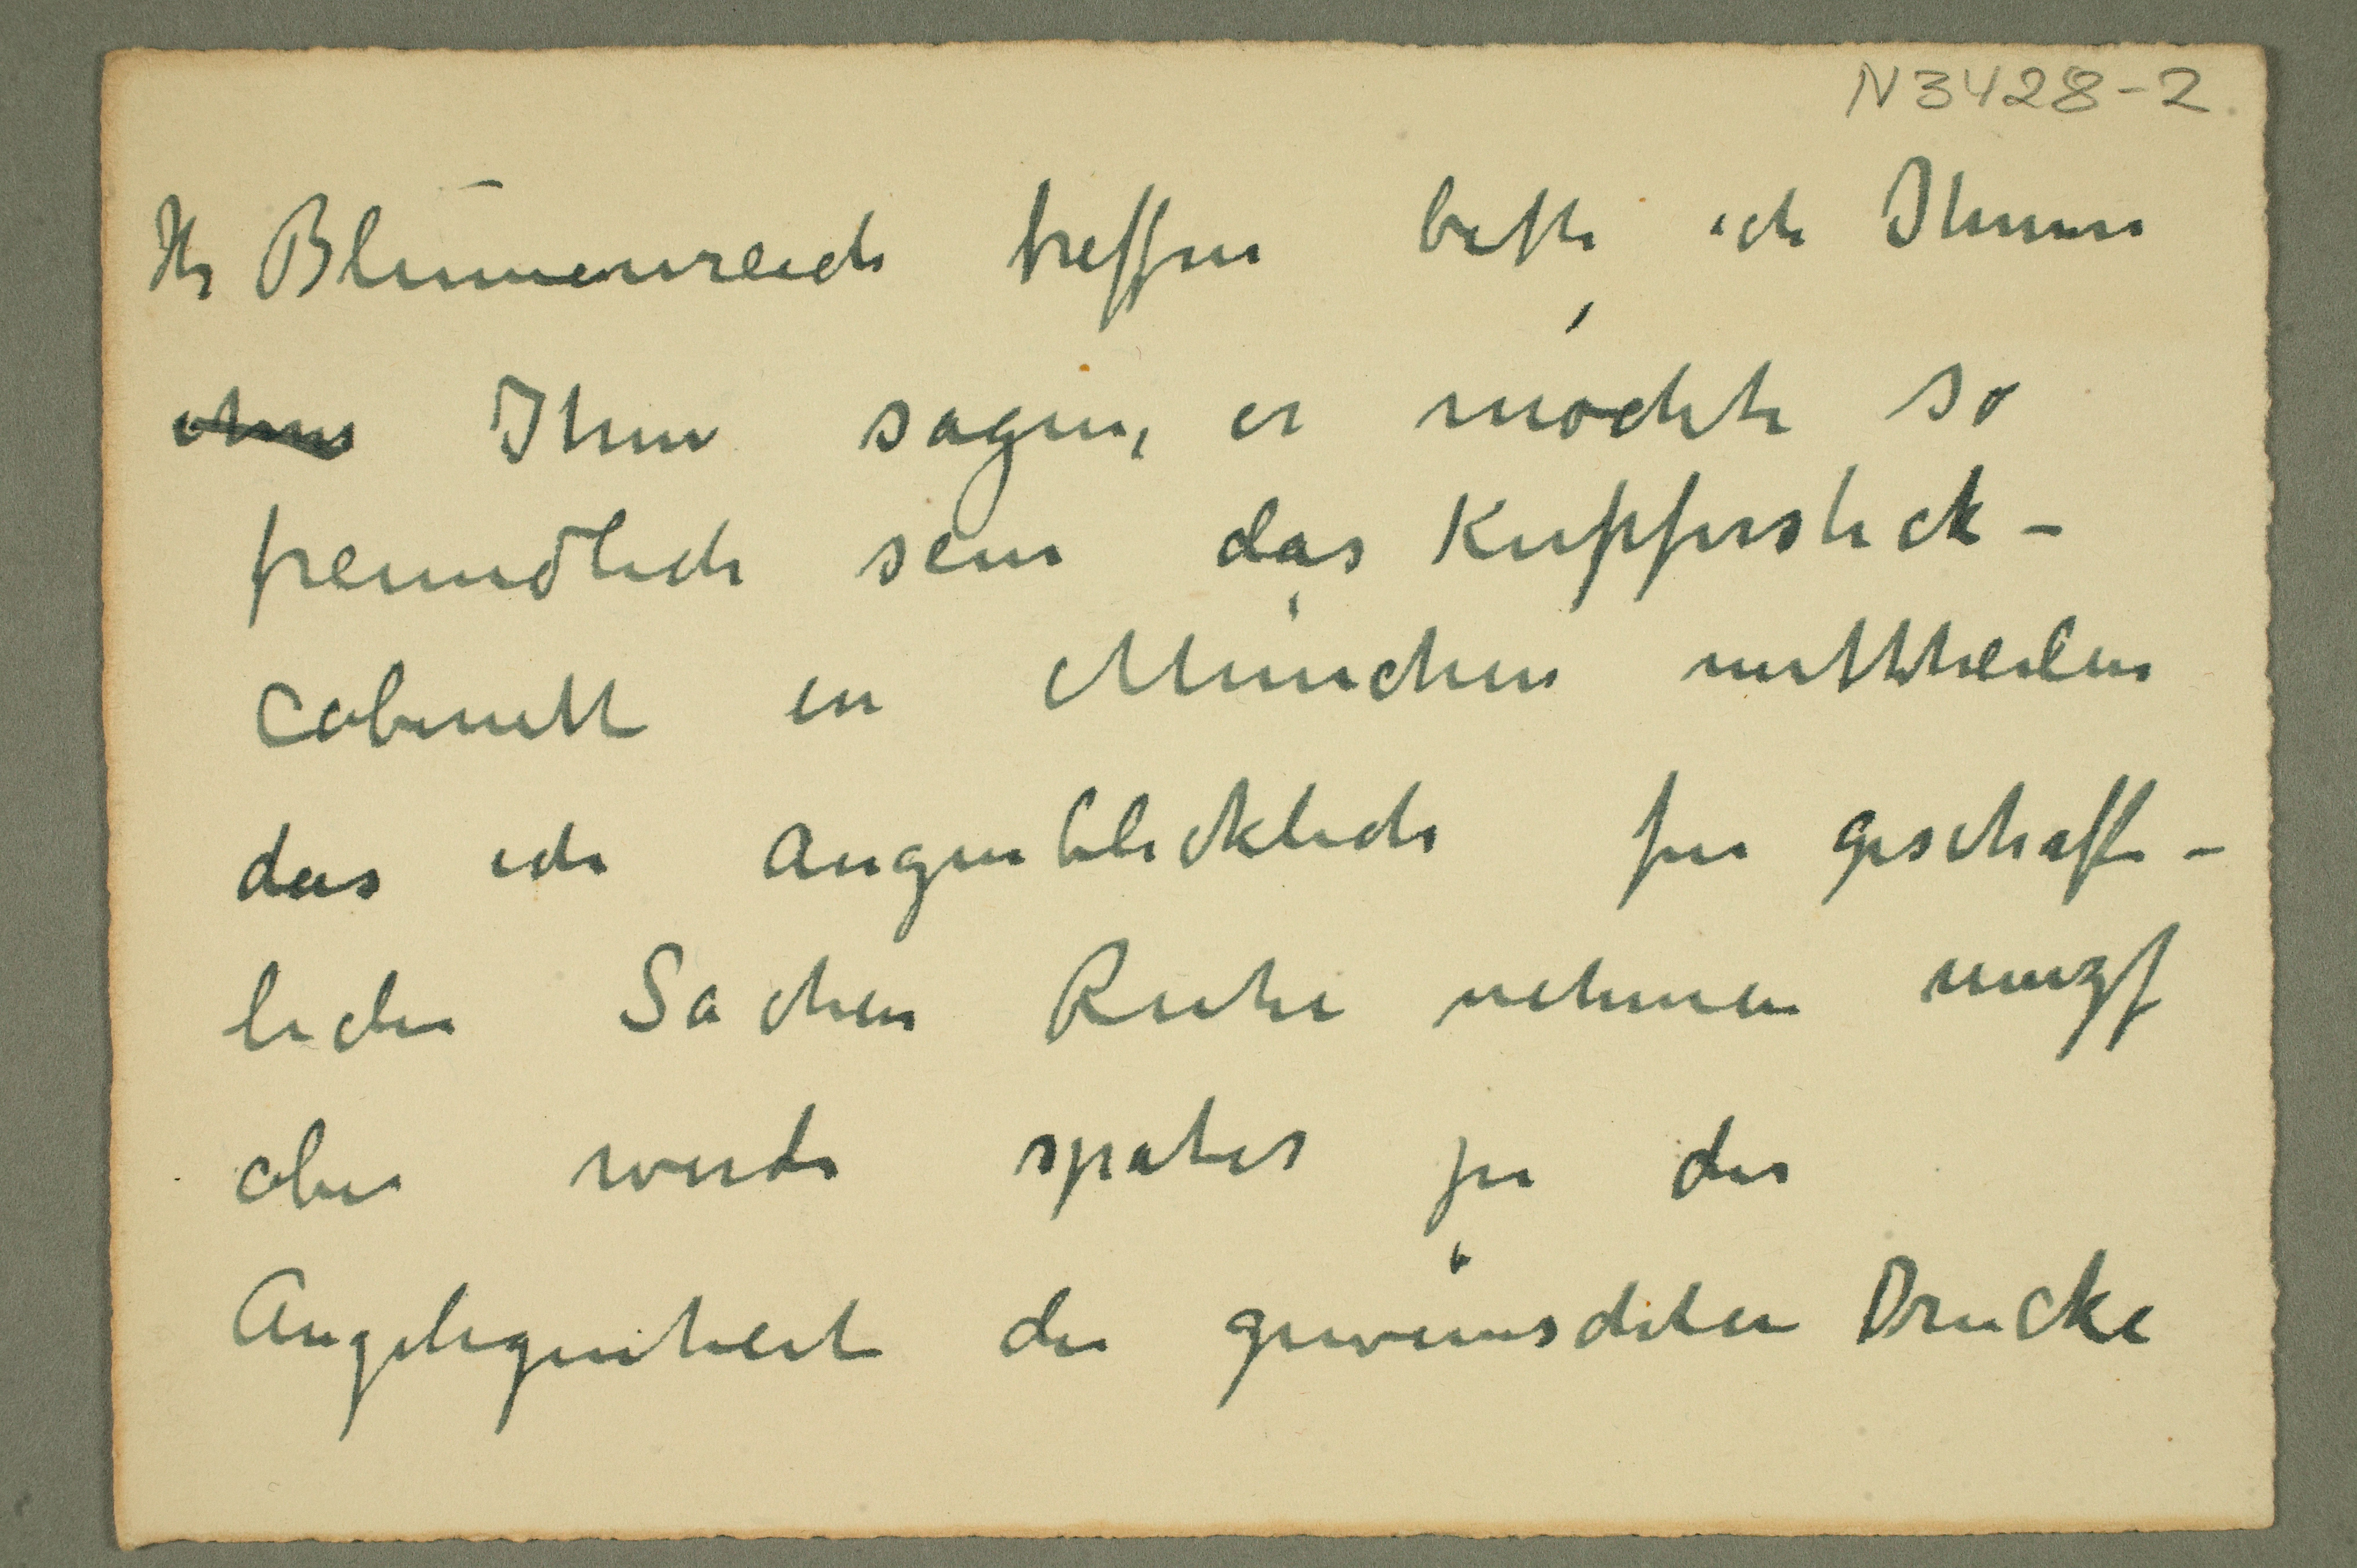 N3428-2
Hr Blumenreich treffen bitte ich Ihnen
Ihm sagen, er möchte so
freundlich sein das Kupferstick-
Cabinett in München mittheilen
das ich augenblicklich fur geschaft-
lichen Sachen Ruhe nehmen
aber werde später fur der
Angelegenheit der gewünschten Drucke